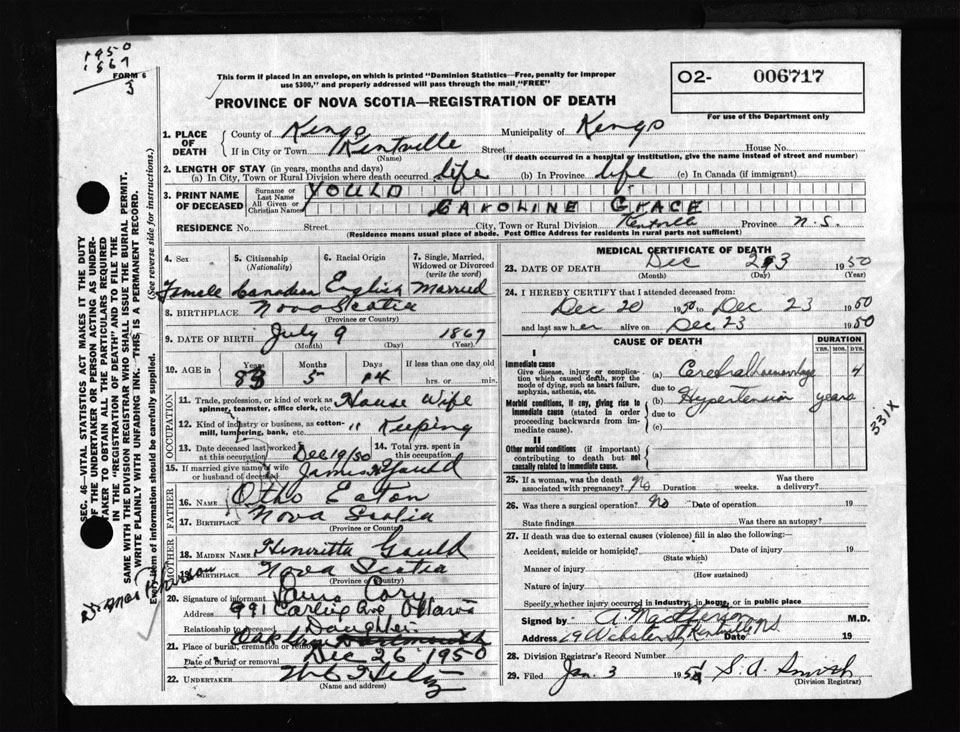 1950
1867
3
FORM 6
This form if placed in an envelope, on which is printed "Dominion Statistics—Free, penalty for improper
use $300," and properly addressed will pass through the mail "FREE"
PROVINCE OF NOVA SCOTIA—REGISTRATION OF DEATH
O2- 006717
For use of the Department only
SEC. 46—VITAL STATISTICS ACT MAKES IT THE DUTY
OF THE UNDERTAKER OR PERSON ACTING AS UNDER-
TAKER TO OBTAIN ALL THE PARTICULARS REQUIRED
IN THE "REGISTRATION OF DEATH" AND TO FILE THE
SAME WITH THE DIVISION REGISTRAR WHO SHALL ISSUE THE BURIAL PERMIT.
WRITE PLAINLY WITH UNFADING INK. THIS IS A PERMANENT RECORD.
Every item of information should be carefully supplied. (See reverse side for instructions.)
1. PLACE OF DEATH
County of Kings Municipality of Kings
If in City or Town Kentville Street House No.
(Name) (If death occurred in a hospital or institution, give the name instead of street and number)
2. LENGTH OF STAY (in years, months and days)
(a) In City, Town or Rural Division where death occurred life (b) In Province life (c) In Canada (if immigrant)
3. PRINT NAME OF DECEASED
Surname or Last Name YOULD
All Given or Christian Names CAROLINE GRACE
RESIDENCE No. Street City, Town or Rural Division Kentville Province N.S.
(Residence means usual place of abode. Post Office Address for residents in rural parts not sufficient)
4. Sex 5. Citizenship (Nationality) 6. Racial Origin 7. Single, Married, Widowed or Divorced (write the word)
Female Canadian English Married
8. BIRTHPLACE Nova Scotia
(Province or Country)
9. DATE OF BIRTH July 9 1867
(Month) (Day) (Year)
10. AGE in Years Months Days If less than one day old
83 5 14 hrs. or min.
OCCUPATION
11. Trade, profession, or kind of work as spinner, teamster, office clerk, etc. House Wife
12. Kind of industry or business, as cotton-mill, lumbering, bank, etc. " Keeping
13. Date deceased last worked at this occupation Dec 19/50 14. Total yrs. spent in this occupation
15. If married give name of wife or husband of deceased James Yould
FATHER
16. Name Otho Eaton
17. Birthplace Nova Scotia
(Province or Country)
MOTHER
18. MAIDEN NAME Henrietta Gould
19. BIRTHPLACE Nova Scotia
(Province or Country)
20. Signature of informant Cory
Address 991 Carling Ave Ottawa
Relationship to deceased Daughter
21. Place of burial, cremation or removal Oak Grove
Date of burial or removal Dec 26 1950
22. UNDERTAKER
(Name and address)
MEDICAL CERTIFICATE OF DEATH
23. DATE OF DEATH Dec 23 1950
(Month) (Day) (Year)
24. I HEREBY CERTIFY that I attended deceased from:
Dec 20 1950 to Dec 23 1950
and last saw her alive on Dec 23 1950
CAUSE OF DEATH
DURATION
YRS. MOS. DYS.
I
Immediate cause
Give disease, injury or complication which caused death, NOT the mode of dying, such as heart failure, asphyxia, asthenia, etc.
(a) Cerebral haemorrhage 4
due to
Morbid conditions, if any, giving rise to immediate cause (stated in order proceeding backwards from immediate cause).
(b) Hypertension years
due to
(c)
331X
II
Other morbid conditions (if important) contributing to death but not causally related to immediate cause.
25. If a woman, was the death associated with pregnancy? No Duration weeks. Was there a delivery?
26. Was there a surgical operation? No Date of operation 19
State findings Was there an autopsy?
27. If death was due to external causes (violence) fill in also the following:—
Accident, suicide or homicide? Date of injury 19
(State which)
Manner of injury
(How sustained)
Nature of injury
Specify whether injury occurred in industry, in home, or in public place
Signed by M.D.
Address 19 Webster St, Kentville N.S. Date 19
28. Division Registrar's Record Number
29. Filed Jan. 3 1951 S. A.
(Division Registrar)